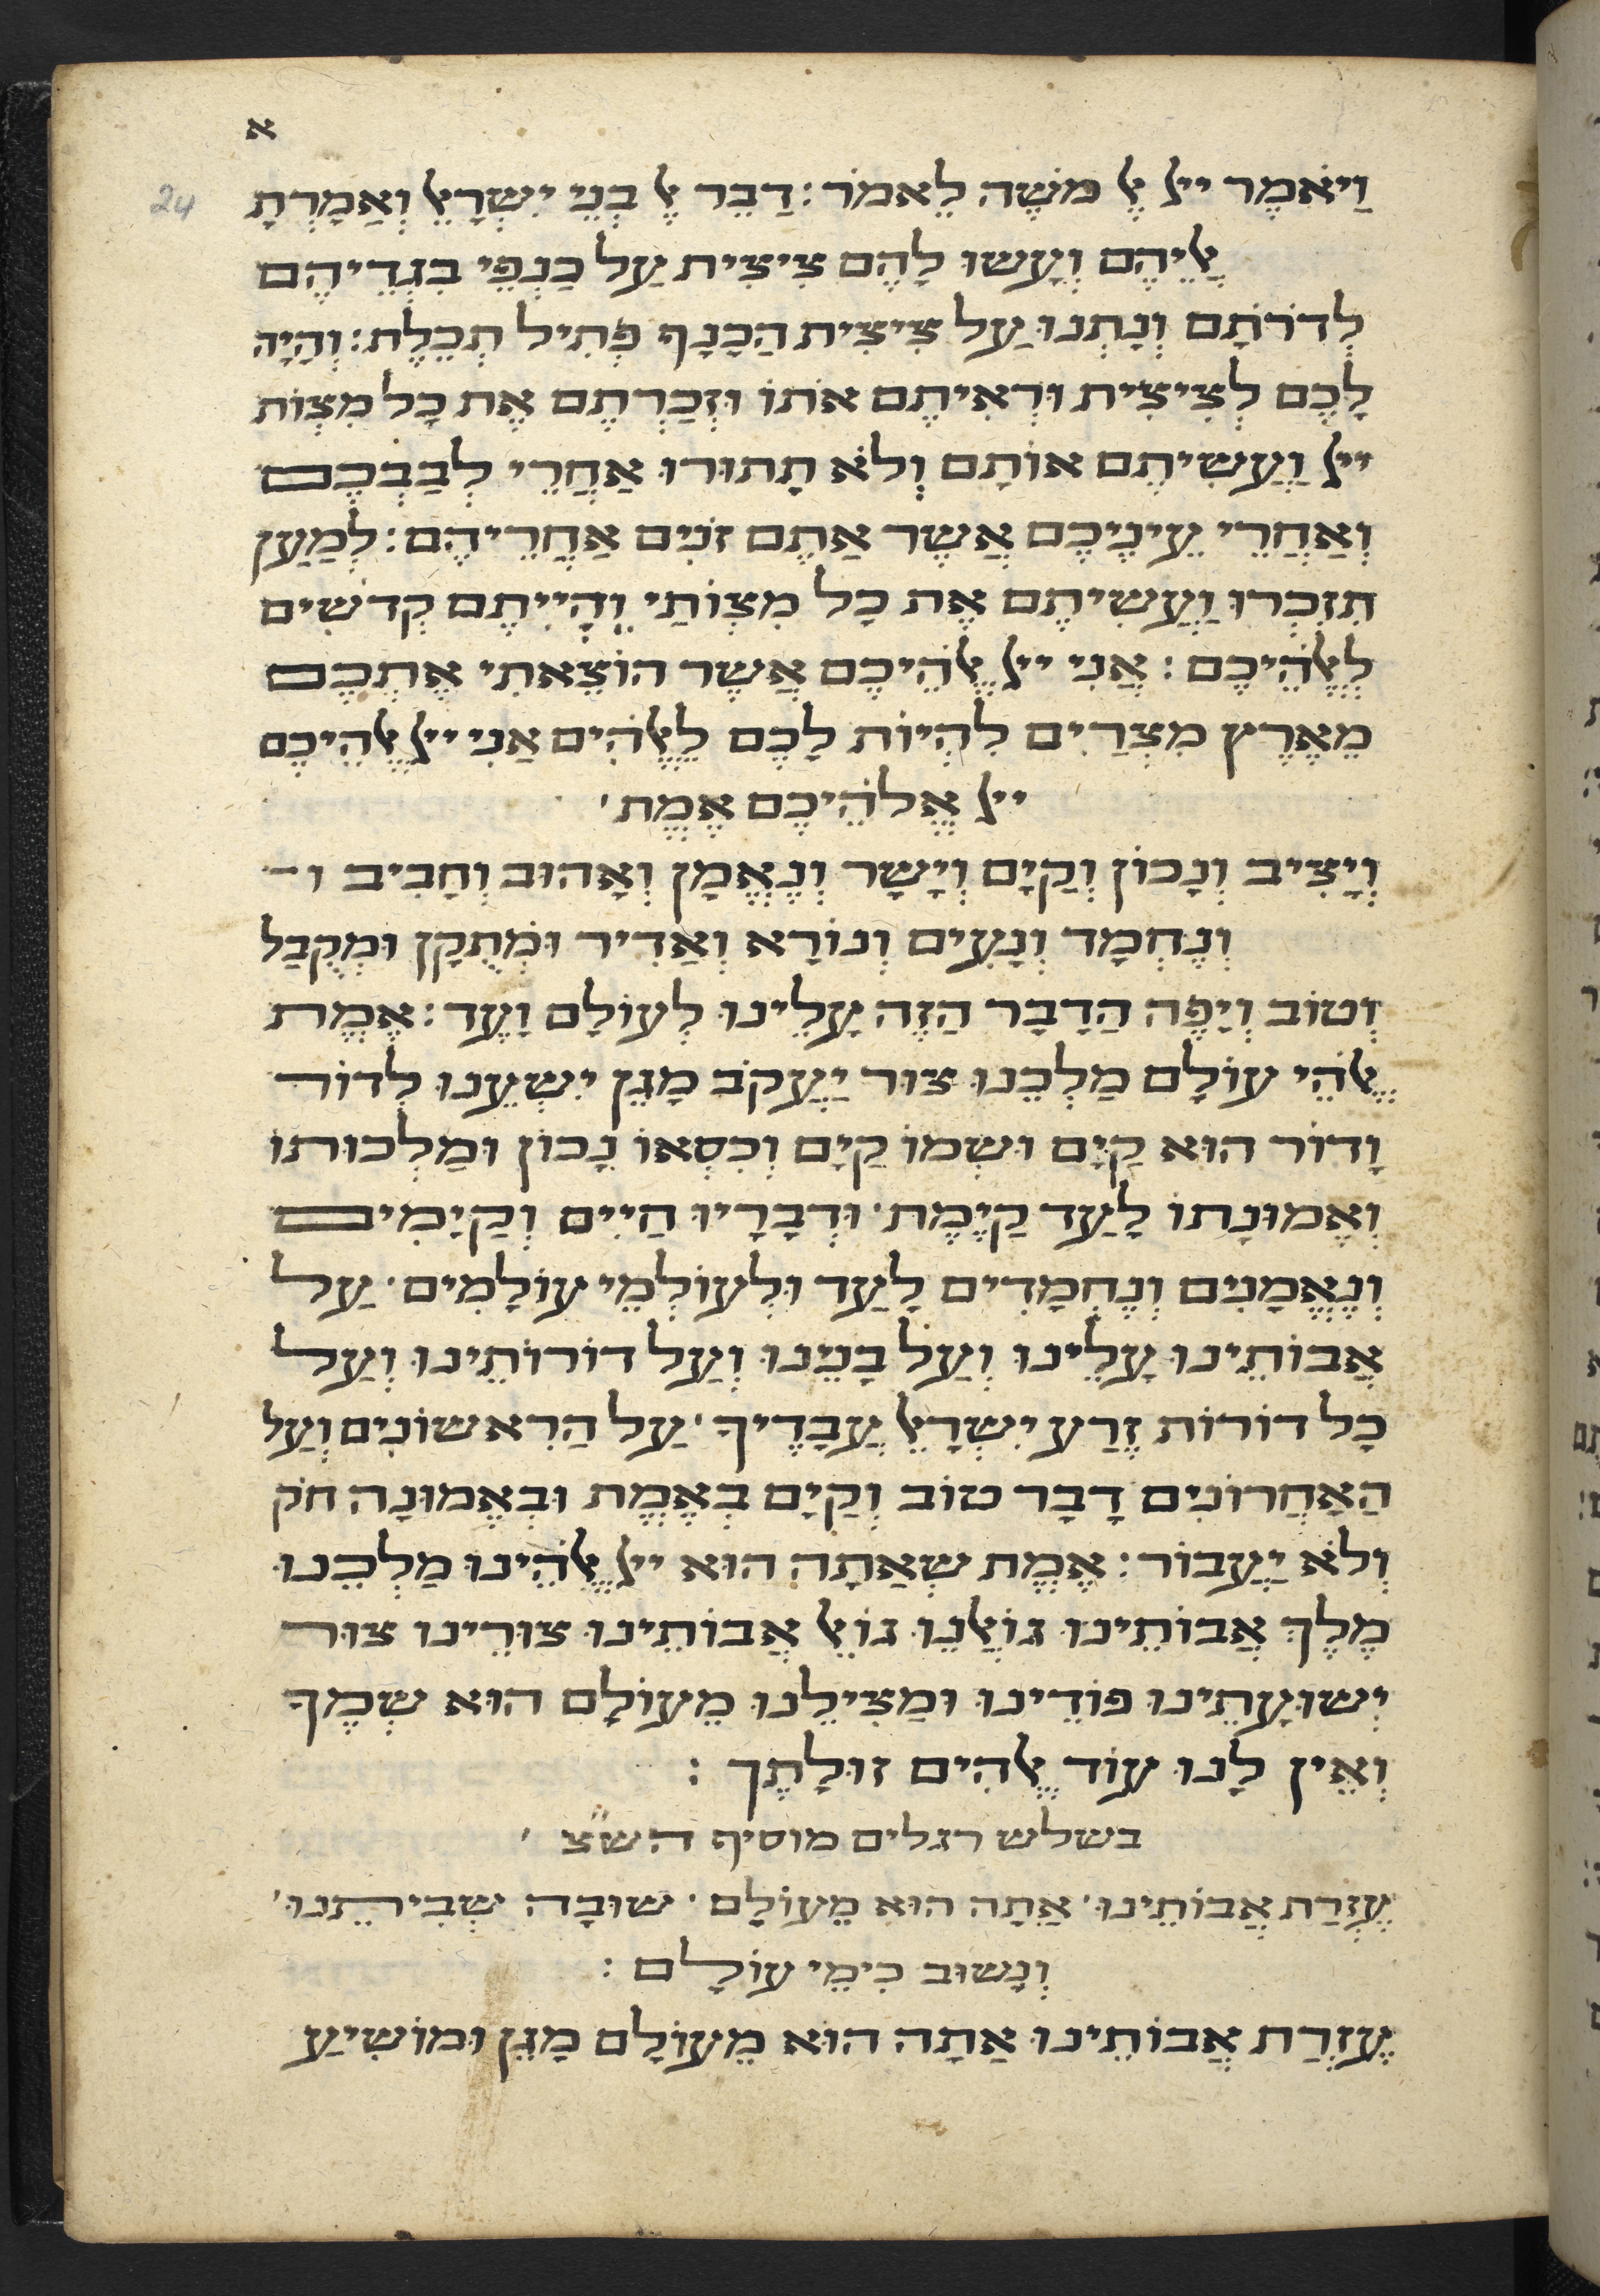 א
24
וַיֹאמֶר יי ﭏֶ מֹשֶה לֵאמֹר: דַבֵר ﭏֶ בְנֵי יִשְרָﭏֵ וְאַמָרְתָ
ﭏֲֵיהֶם וְעָשוּ לָהֶם צִיצִית עַל כַנְפֵי בִגְדֵיהֶם
לְדֹרֹתָם וְנָתְנוּ עַל צִיצִית הַכָנָף פְתִיל תְכֵלֶת: וְהָיָה
לָכֶם לְצִיצִית וּרְאִיתֶם אֹתוֹ וּזְכַרְתֶם אֶת כָל מִצְוֹת
יי וַעֲשִיתֶם אוֹתָם וְלֹא תָתוּרוּ אַחֲרֵי לְבַבְכֶם
וְאַחֲרֵי עֵינֵיכֶם אֲשֶר אַתֶם זֹנִים אַחֲרֵיהֶם: לְמַעַן
תִזְכְרוּ וַעֲשִיתֶם אֶת כָל מִצְוֹתַי וִהְיִיתֶם קְדֹשִים
לֵﭏֹהֵיכֶם: אֲנִי יי ﭏֱֹהֵיכֶם אֲשֶר הוֹצֵאתִי אֶתְכֶם
מֵאֶרֶץ מִצְרַיִם לִהְיוֹת לָכֶם לֵﭏֹהִים אַנִי יי ﭏֱהֵיכֶם
יי אֱלֹהֵיכֶם אֱמֶת׳
וְיָצִיב וְנָכוֹן וְקַיָם וְיָשָר וְנֶאֱמָן וְאָהוּב וְחָבִיב ו
וְנֶחְמָד וְנָעִים וְנוֹרָא וְאַדִיר וּמְתֻקָן וּמְקֻבַל
וְטוֹב וְיָפֶה הַדָבָר הַזֶה עָלֵינוּ לְעוֹלָם וָעֶד: אֱמֶת
ﭏֱֹהֵי עוֹלָם מַלְכֵנוּ צוּר יַעֲקֹב מָגֵן יִשְעֵנוּ לְדוֹר
וָדוֹר הוּא קַיָם וּשְמוֹ קַיָם וְכִסְאוֹ נָכוֹן וּמַלְכוּתוֹ
וְאֱמוּנָתוֹ לָעַד קַיֶמֶת׳ וּדְבָרָיו חַיִים וְקַיָמִים
וְנֶאֱמָנִים וְנֶחְמָדִים לָעַד וּלְעוֹלְמֵי עוֹלָמִים׳ עַל
אֲבוֹתֵינוּ עָלֵינוּ וְעַל בָנֵינוּ וְעַל דוֹרוֹתֵינוּ וְעַל
כָל דוֹרוֹת זֶרַע יִשְרָﭏֵ עֲבָדֶיךָ׳ עַל הַרִאשוֹנִים וְעַל
הַאַחֲרוֹנִים דָבָר טוֹב וְקַיָם בְאֱמֶת וּבְאֱמוּנָה חֹק
וְלֹא יַעֲבוֹר: אֱמֶת שְאַתָה הוּא יי ﭏֱֹהֵינוּ מַלְכֵנוּ
מֶלֶךְ אֲבוֹתֵינוּ גוֹﭏֲנוּ גוֹﭏֵ אֲבוֹתֵינוּ צוּרֵינוּ צוּר
יְשוּעָתֵינוּ פוֹדֵינוּ וּמַצִילֵנוּ מֵעוֹלָם הוּא שְמֶךָ
וְאֵין לָנוּ עוֹד ﭏֱהִים זוּלָתֶךָ:
בשלש רגלים מוסיף הש״צ׳
עֶזְרַת אֲבוֹתֵינוּ׳ אַתָה הוּא מֵעוֹלָם׳ שוּבָה שְבִיתֵנוּ׳
וְנָשוּב כִימֵי עוֹלָם:
עֶזְרַת אֲבוֹתֵינוּ אַתָה הוּא מֵעוֹלָם מָגֵן וּמוֹשִיעַ